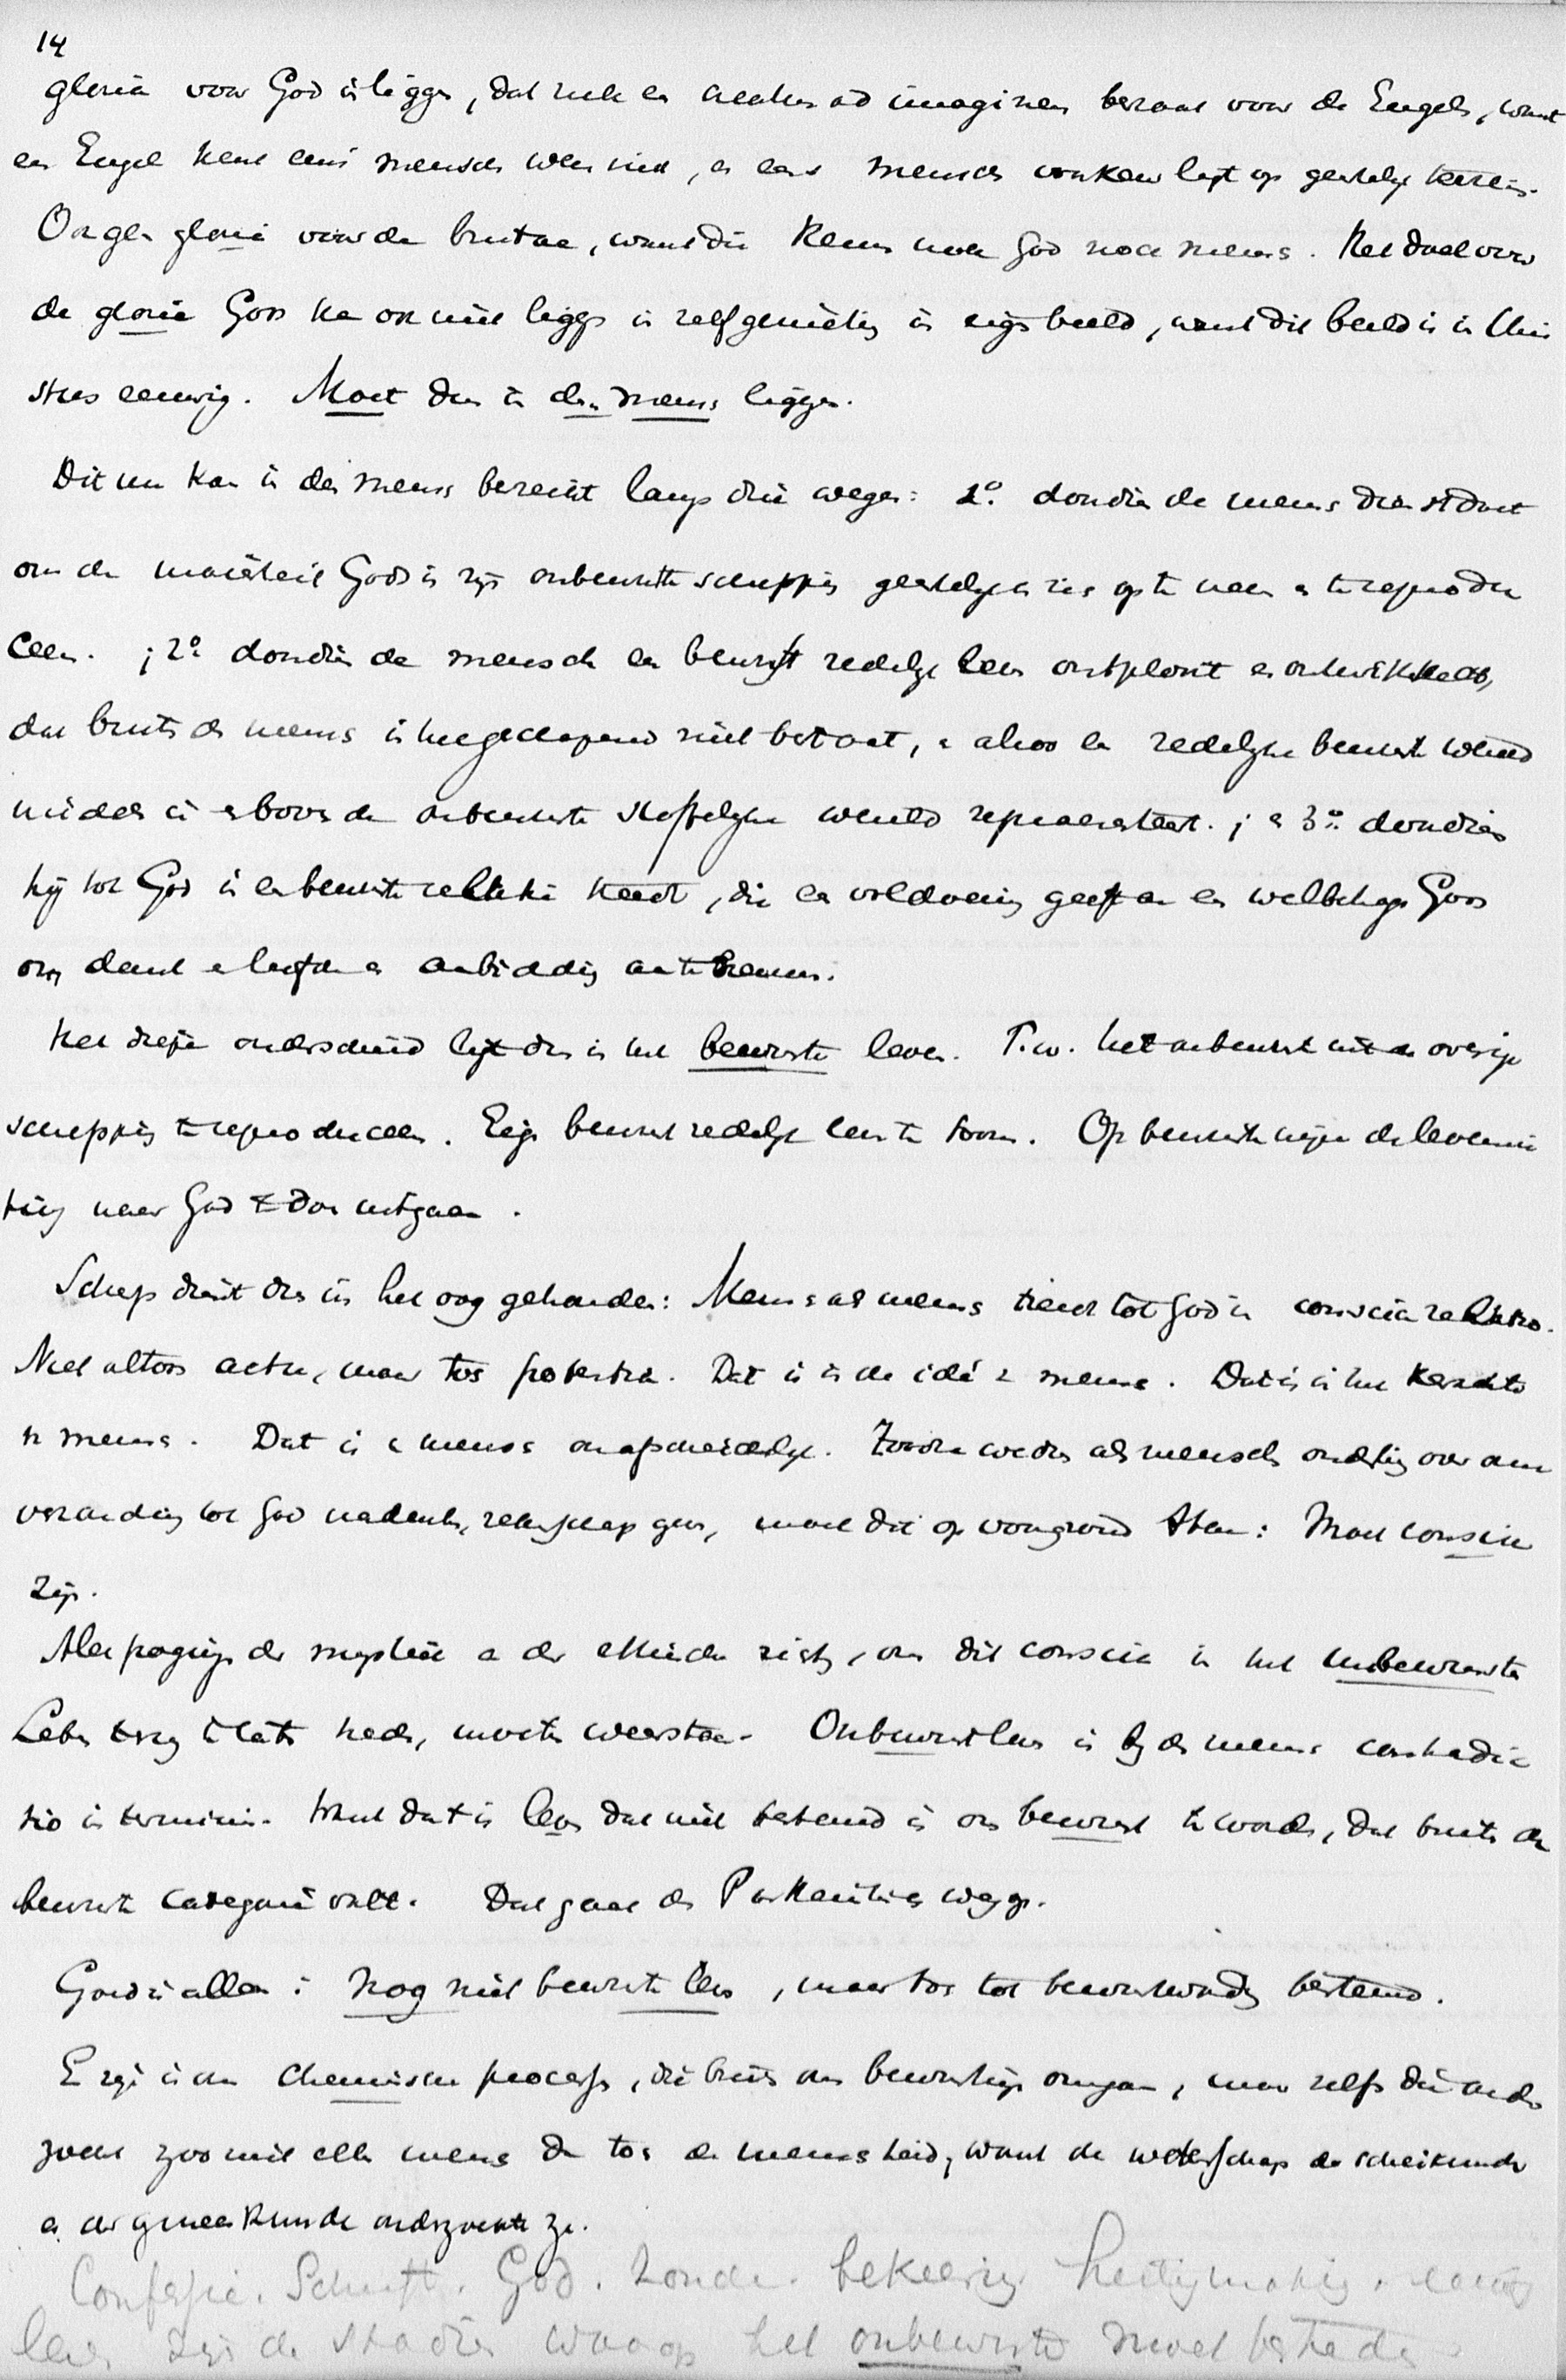 14
gloria voor God in liggen, dat zulk een creatus ad imaginem bestaat voor de Engelen, want
een Engel kent eens menschen wezen niet, en eens menschen werken ligt op geestelijk terrein.
Ook geen gloria voor de brutae, want die kennen noch God noch mens. Het doel voor
de gloria Gods kan ook niet liggen in zelfgenieting in eigen beeld, want dit beeld is in Chris
tus eeuwig. Moet dus in den mens liggen.
Dit nu kan in den mens bereikt langs drie wegen: 1º. doordien de mens dienst doet
om de majesteit Gods in zijn onbewuste schepping geestelijk in zich op te nemen en te reprodu
ceeren. ; 2º doordien de mensch een bewust redelijk leven ontplooit en ontwikkelt,
dat buiten de mens in het geschapene niet bestaat, en alzoo een redelijke bewuste wereld
midden in en boven de onbewuste stoffelijke wereld representeert. ; en 3º. doordien
hij tot God in een bewuste relatie treedt, die een voldoening geeft aan een welbehagen Gods
om dank en liefde en aanbidding aan te nemen.
Het diepe onderscheid ligt dus in het bewuste leven. T.w. het onbewust uit de overige
schepping te reproduceeren. Eigen bewust redelijk leven te tonen. Op bewuste wijze de levens
ting naar God te doen uitgaan.
Scherp dient dus in het oog gehouden: Mens als mens treedt tot God in conscia relatio.
Niet altoos actu, maar toch potentia. Dat is in de idé v mens. Dat is in het
v mens. Dat is v mens onafscheidelijk. Zoodra we dus als mensch onderling over onze
verhouding tot God nadenken, rekenschap geven, moet dit op voorgrond staan: Moet conscia
zijn.
Alle poging der mystiek en der ethische richting, om dit conscia in het Unbewusste
Leben terug te laten treden, moeten weerstaan. Onbewust leven is bij de mens contradic
tio in terminis. Want dat is leven dat niet bestemd is om bewust te worden, dat buiten de
bewuste categorie valt. Dat gaat de Pantheistische weg op.
Goed is alleen: nog niet bewust leven, maar toch tot bewustwording bestemd.
Er zijn in ons chemische processen, die buiten ons bewustzijn omgaan, maar zelfs die onder
zoekt zoo niet elk mens dan toch de mensheid, want de wetenschap der scheikunde
en der geneeskunde onderzoekt ze.
Confessie. Schrift. God. Zonde. bekeering. heiligmaking. eeuwig
leven zijn de stadiën waarop het onbewuste moet